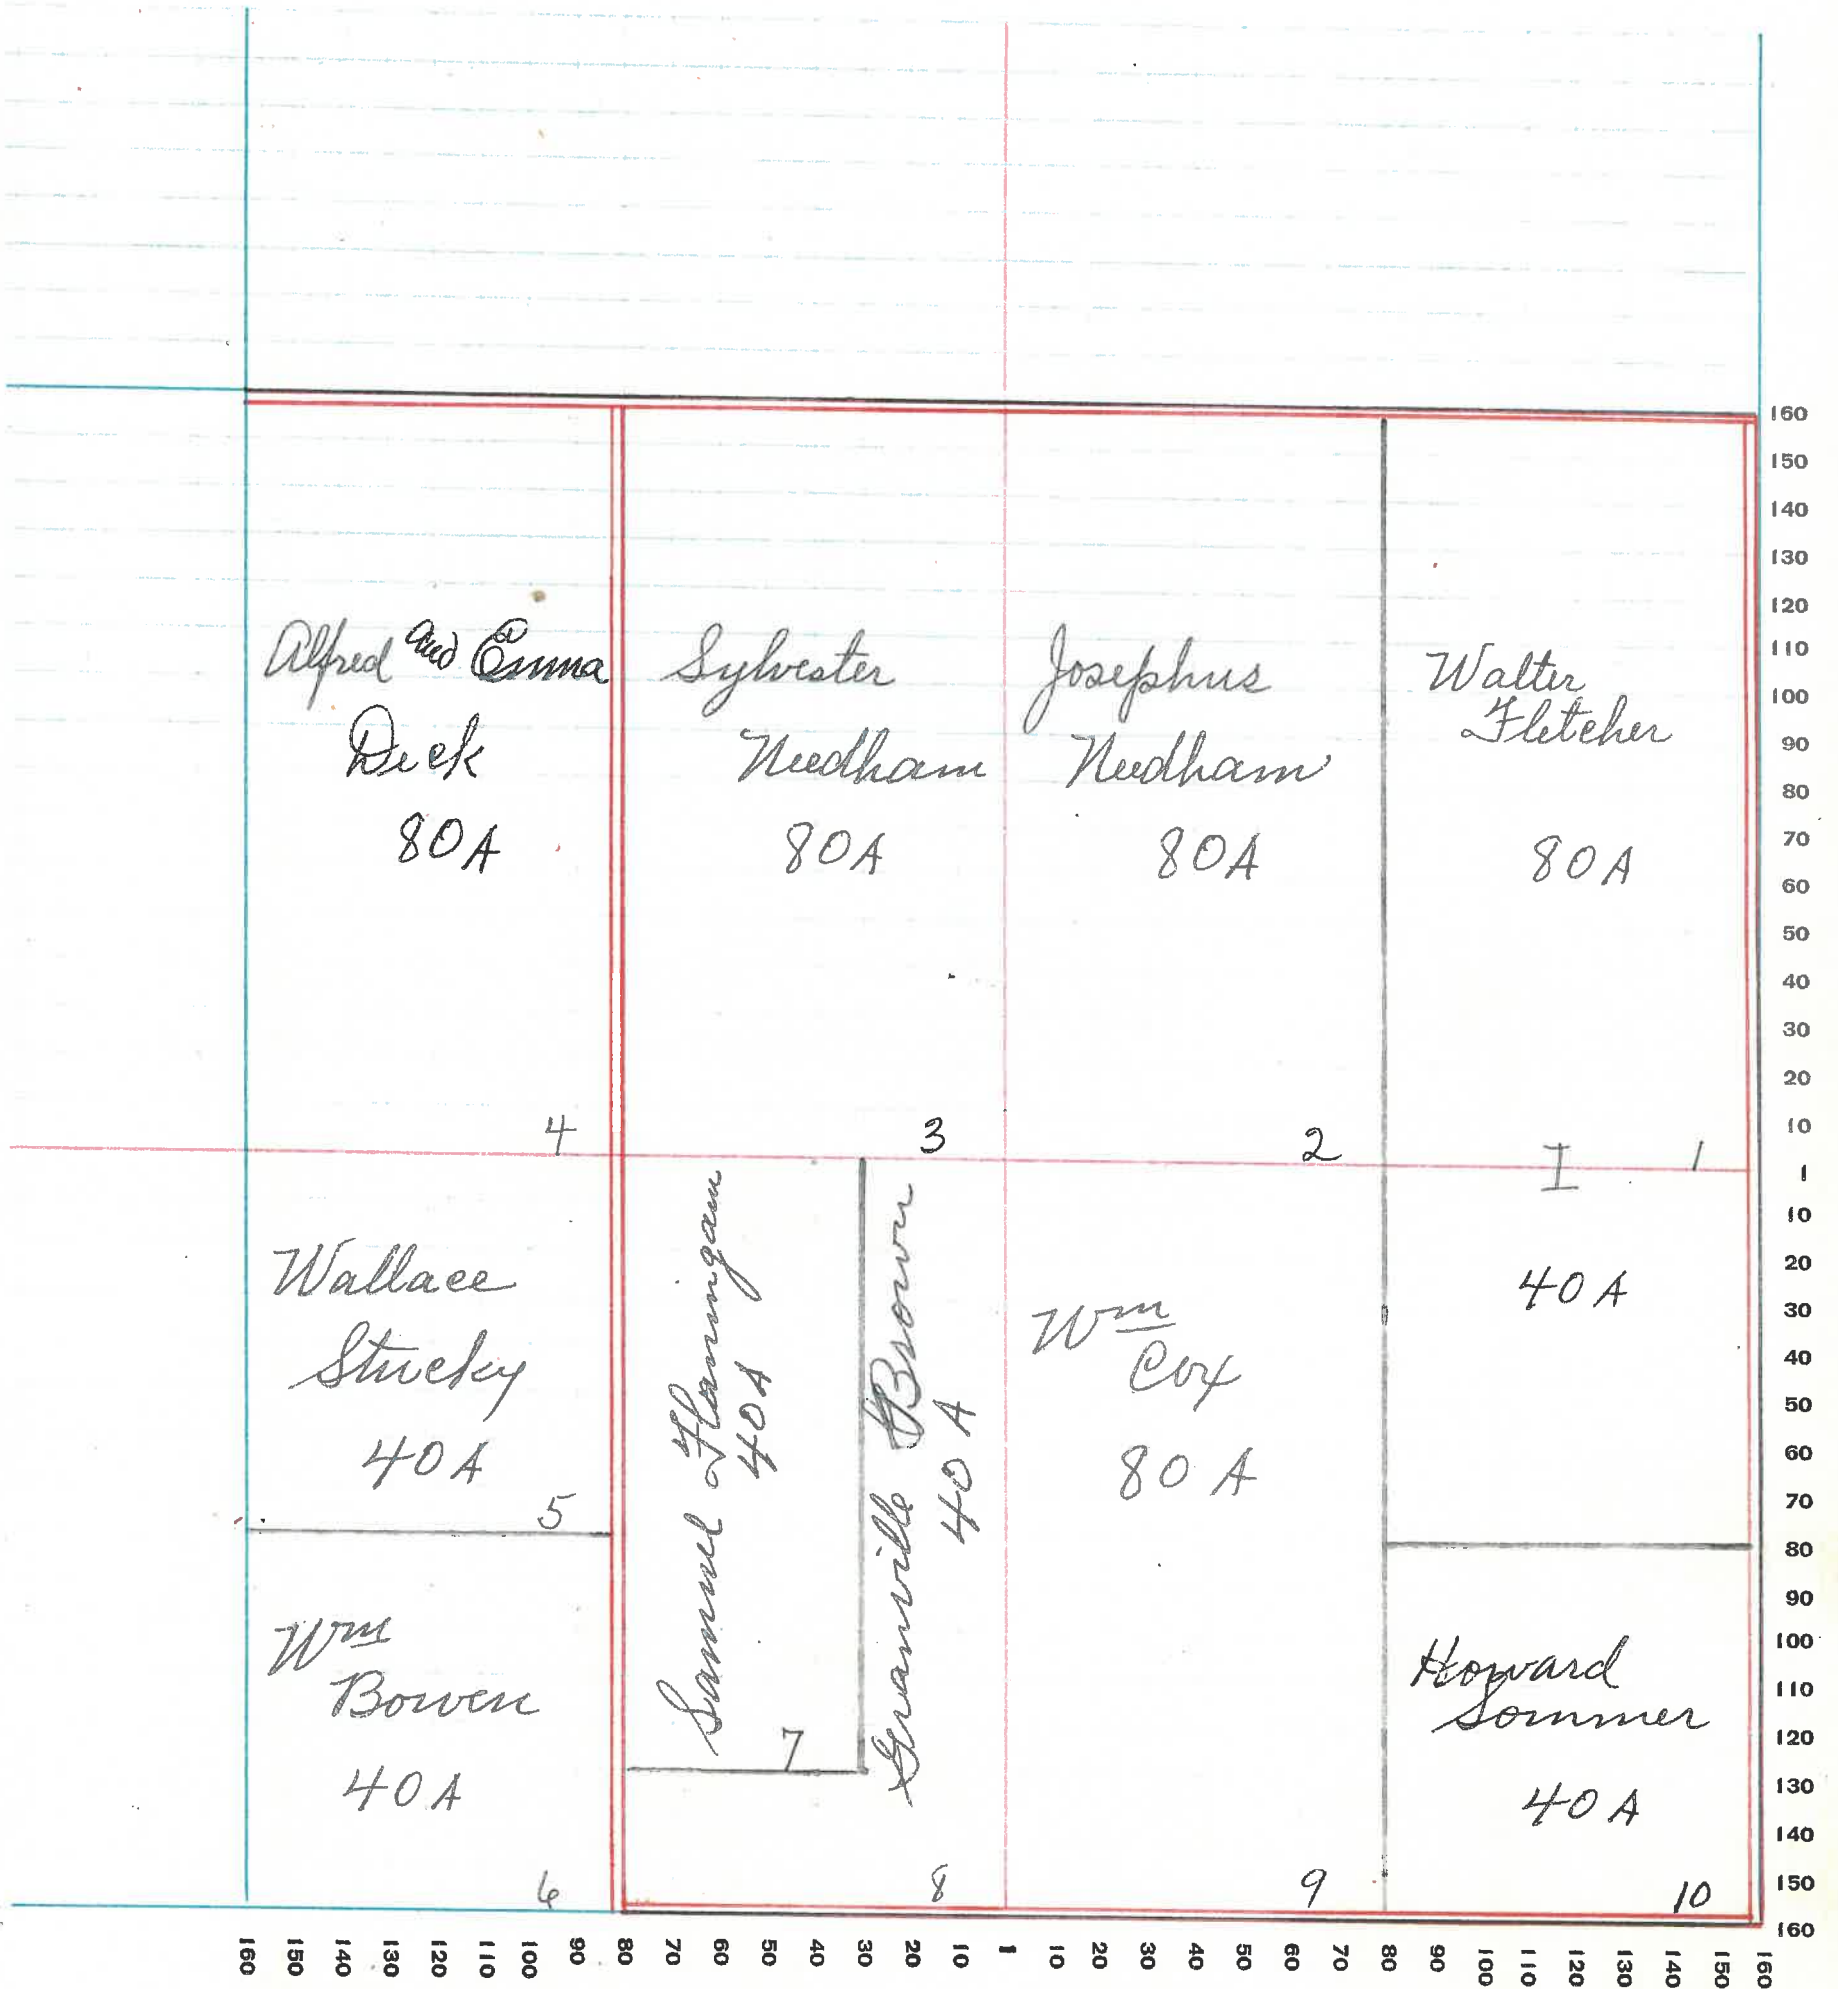 Alfred and Emma
Deck
80A
4
Sylvester
Needham
80A
3
Josephus
Needham
80A
2
Walter
Fletcher
80A
1
I
40A
Wallace
Stucky
40A
5
Wm
Bowen
40A
6
Samuel Flanningam
40A
7
Granville Brown
40A
8
Wm
Cox
80A
9
Howard
Sommer
40A
10
160
150
140
130
120
110
100
90
80
70
60
50
40
30
20
10
1
10
20
30
40
50
60
70
80
90
100
110
120
130
140
150
160
160 150 140 130 120 110 100 90 80 70 60 50 40 30 20 10 1 10 20 30 40 50 60 70 80 90 100 110 120 130 140 150 160